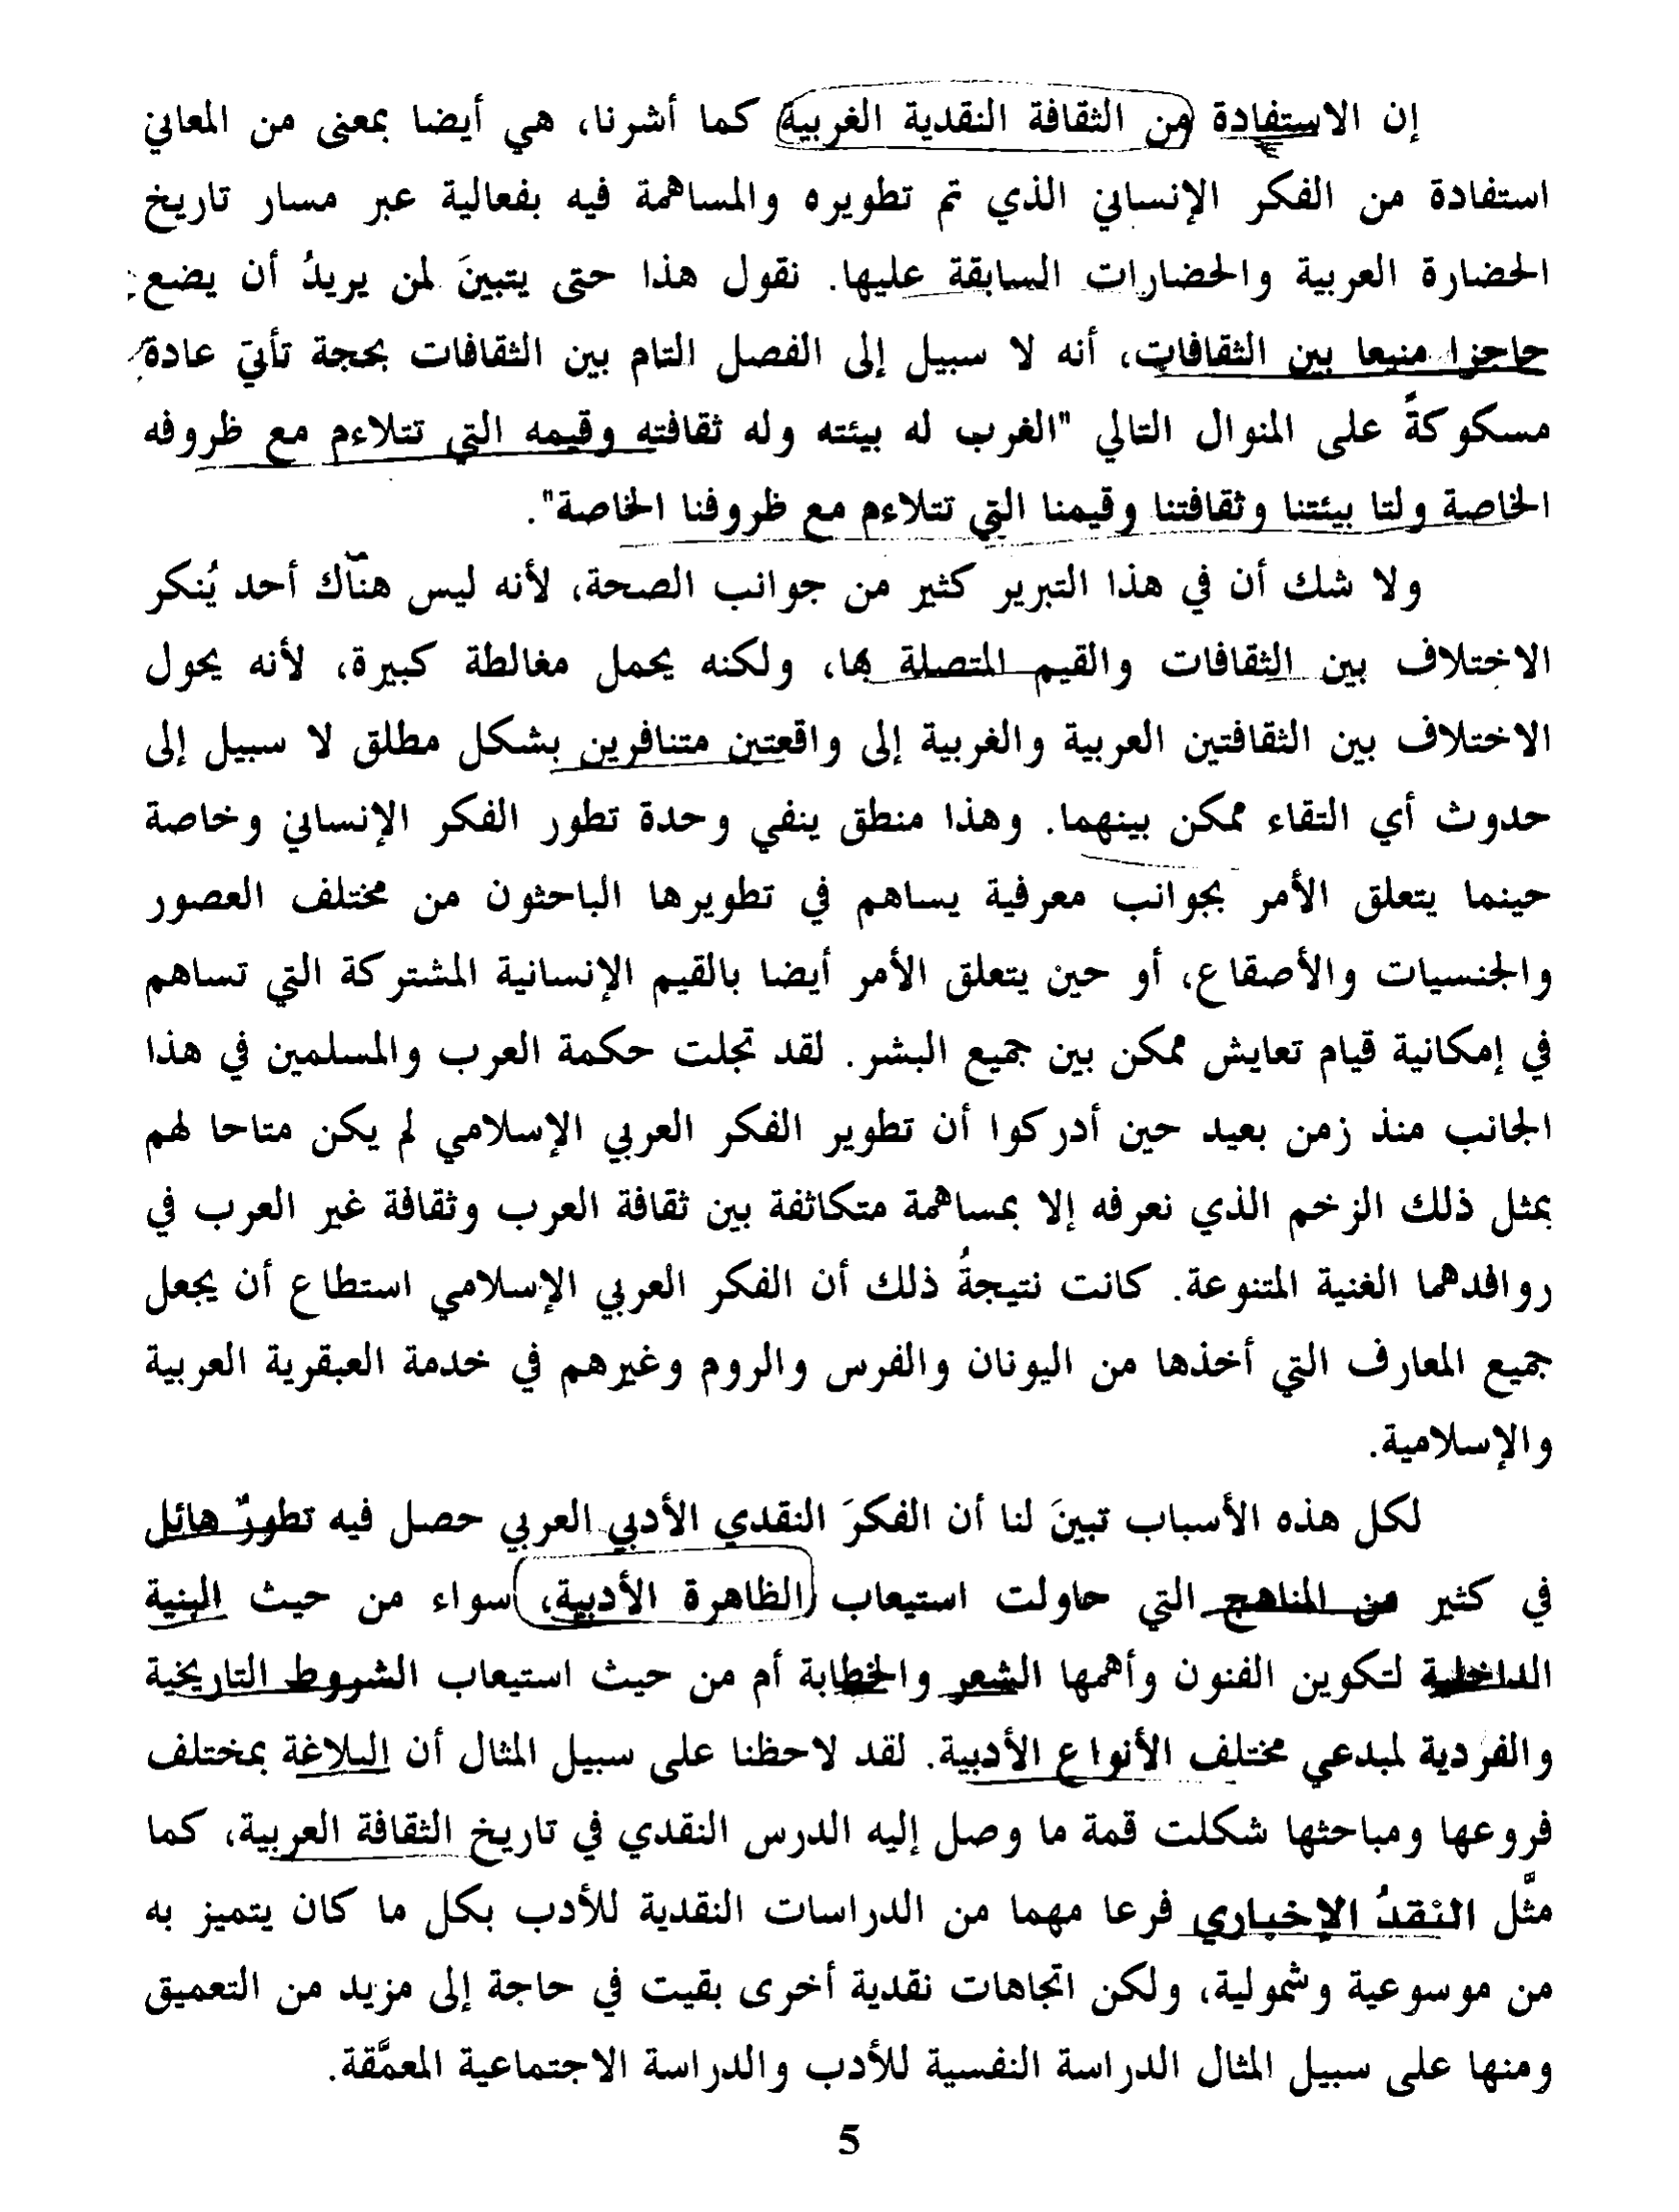 إن الاستفادة من الثقافة النقدية الغربية كما أشرنا، هي أيضا بمعنى من المعاني
استفادة من الفكر الإنساني الذي تم تطويره والمساهمة فيه بفعالية عبر مسار تاريخ
الحضارة العربية والحضارات السابقة عليها. نقول هذا حتى يتبينَ لمن يريدُ أن يضع
حاجزا منيعا بين الثقافات، أنه لا سبيل إلى الفصل التام بين الثقافات بحجة تأتي عادة
مسكوكةً على المنوال التالي "الغرب له بيئته وله ثقافته وقيمه التي تتلاءم مع ظروفه
الخاصة ولنا بيئتنا وثقافتنا وقيمنا التي تتلاءم مع ظروفنا الخاصة".
ولا شك أن في هذا التبرير كثير من جوانب الصحة، لأنه ليس هناك أحد يُنكر
الاختلاف بين الثقافات والقيم المتصلة بها، ولكنه يحمل مغالطة كبيرة، لأنه يحول
الاختلاف بين الثقافتين العربية والغربية إلى واقعتين متنافرين بشكل مطلق لا سبيل إلى
حدوث أي التقاء ممكن بينهما. وهذا منطق ينفي وحدة تطور الفكر الإنساني وخاصة
حينما يتعلق الأمر بجوانب معرفية يساهم في تطويرها الباحثون من مختلف العصور
والجنسيات والأصقاع، أو حين يتعلق الأمر أيضا بالقيم الإنسانية المشتركة التي تساهم
في إمكانية قيام تعايش ممكن بين جميع البشر. لقد تجلت حكمة العرب والمسلمين في هذا
الجانب منذ زمن بعيد حين أدركوا أن تطوير الفكر العربي الإسلامي لم يكن متاحا لهم
بمثل ذلك الزخم الذي نعرفه إلا بمساهمة متكاثفة بين ثقافة العرب وثقافة غير العرب في
روافدهما الغنية المتنوعة. كانت نتيجةُ ذلك أن الفكر العربي الإسلامي استطاع أن يجعل
جميع المعارف التي أخذها من اليونان والفرس والروم وغيرهم في خدمة العبقرية العربية
والإسلامية.
لكل هذه الأسباب تبينَ لنا أن الفكرَ النقدي الأدبي العربي حصل فيه تطورٌ هائل
في كثير من المناهج التي حاولت استيعاب الظاهرة الأدبية، سواء من حيث البنية
الداخلية لتكوين الفنون وأهمها الشعر والخطابة أم من حيث استيعاب الشروط التاريخية
والفردية لمبدعي مختلف الأنواع الأدبية. لقد لاحظنا على سبيل المثال أن البلاغة بمختلف
فروعها ومباحثها شكلت قمة ما وصل إليه الدرس النقدي في تاريخ الثقافة العربية، كما
مثَّل النقدُ الإخباري فرعا مهما من الدراسات النقدية للأدب بكل ما كان يتميز به
من موسوعية وشمولية، ولكن اتجاهات نقدية أخرى بقيت في حاجة إلى مزيد من التعميق
ومنها على سبيل المثال الدراسة النفسية للأدب والدراسة الاجتماعية المعمَّقة.
5